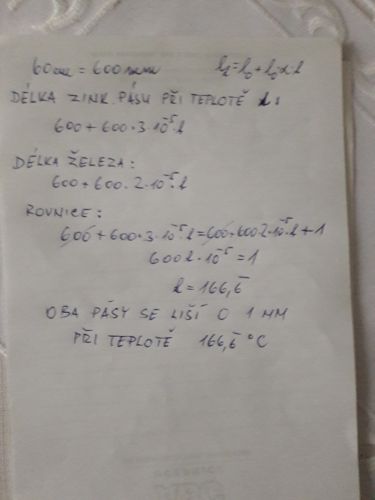 60cm = 600mm l₂=l₀+l₀αt
DÉLKA ZINK. PÁSU PŘI TEPLOTĚ t:
600+600·3·10⁻⁵·t
DÉLKA ŽELEZA:
600+600·2·10⁻⁵·t
ROVNICE:
600+600·3·10⁻⁵·t=600+600·2·10⁻⁵·t+1
600t·10⁻⁵=1
t=166,6̄
OBA PÁSY SE LIŠÍ O 1 MM
PŘI TEPLOTĚ 166,6̄ °C